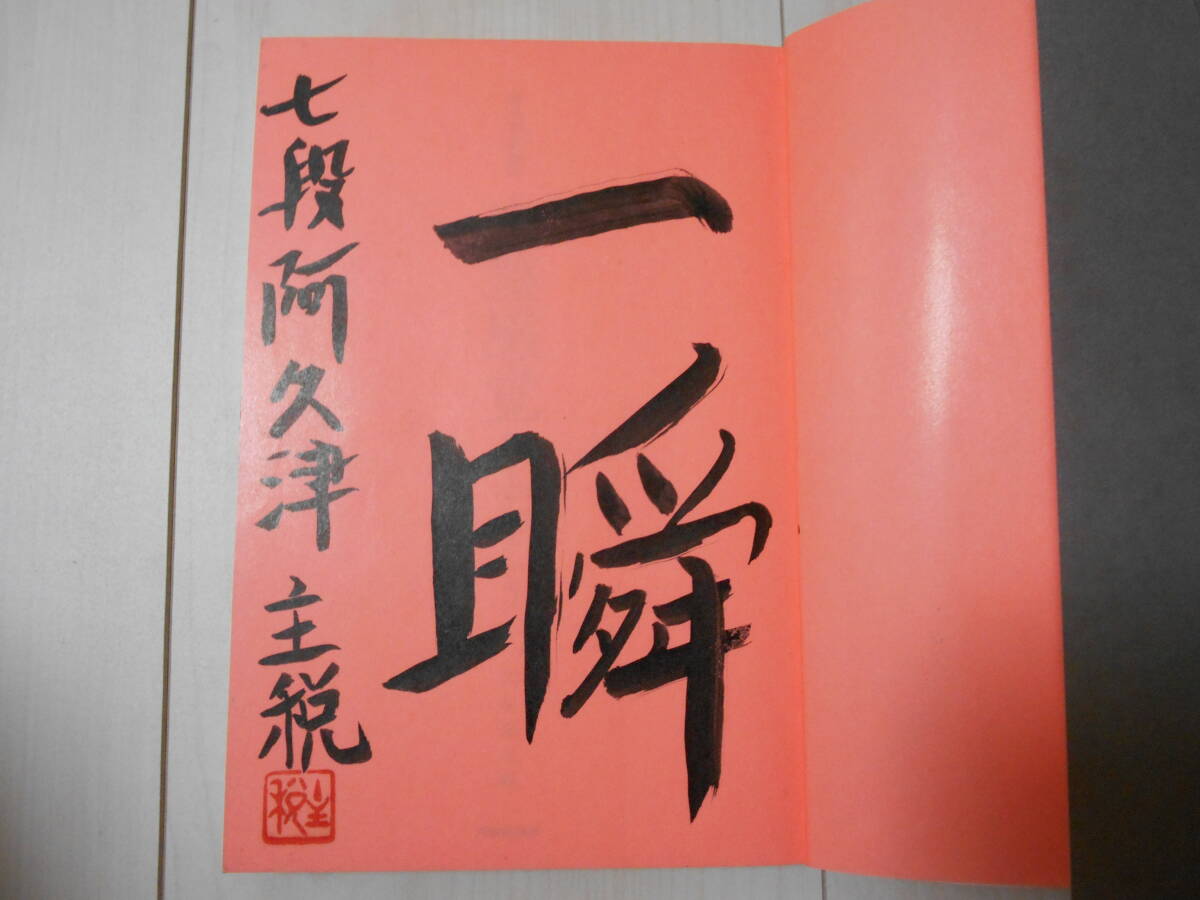 一瞬
七段 阿久津 主税
主税